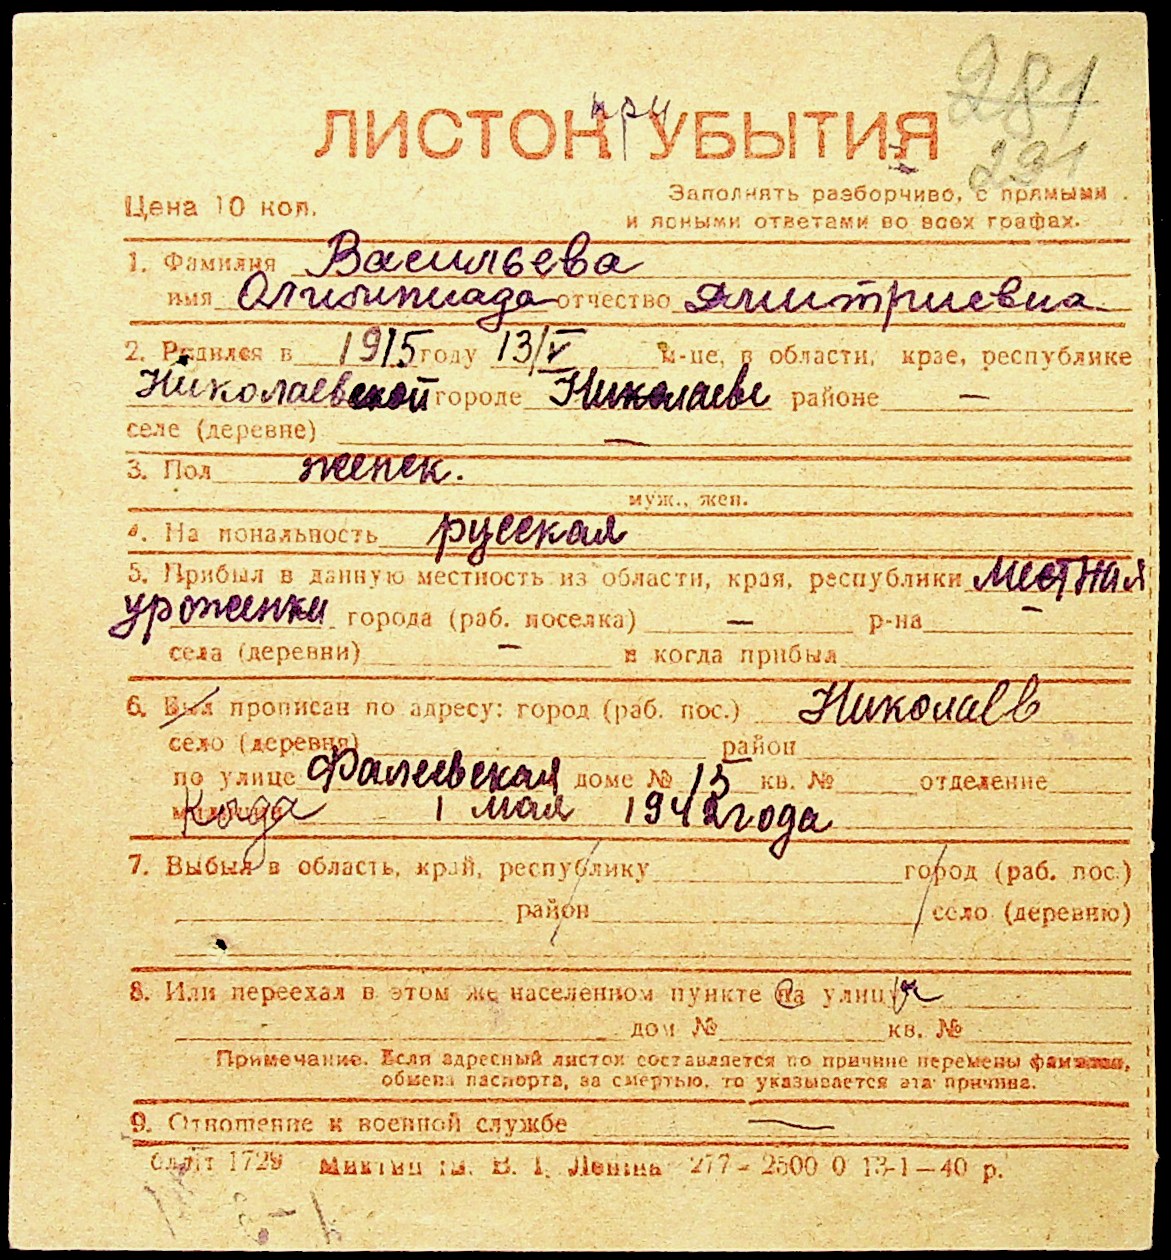 281
при
ЛИСТОК УБЫТИЯ
291
Цена 10 коп.
Заполнять разборчиво, с прямыми
и ясными ответами во всех графах.
1. Фамилия Васильева
имя Олимпиада отчество Дмитриевна
2. Родился в 1915 году 13/V м-це, в области, крае, республике
Николаевской городе Николаеве районе —
селе (деревне) —
3. Пол женск.
муж., жен.
4. Национальность русская
5. Прибыл в данную местность из области, края, республики местная
уроженка города (раб. поселка) — р-на —
села (деревни) — и когда прибыл
6. Был прописан по адресу: город (раб. пос.) Николаев
село (деревня) район
по улице Фалеевская доме № 15 кв. № отделение
Когда 1 мая 1942 года
7. Выбыл в область, край, республику город (раб. пос.)
район село (деревню)
8. Или переехал в этом же населенном пункте на улицу
дом № кв. №
Примечание. Если адресный листок составляется по причине перемены фамилии,
обмена паспорта, за смертью, то указывается эта причина.
9. Отношение к военной службе —
Облит 1729 им. В. І. Леніна 277 – 2500 0 13-1–40 р.